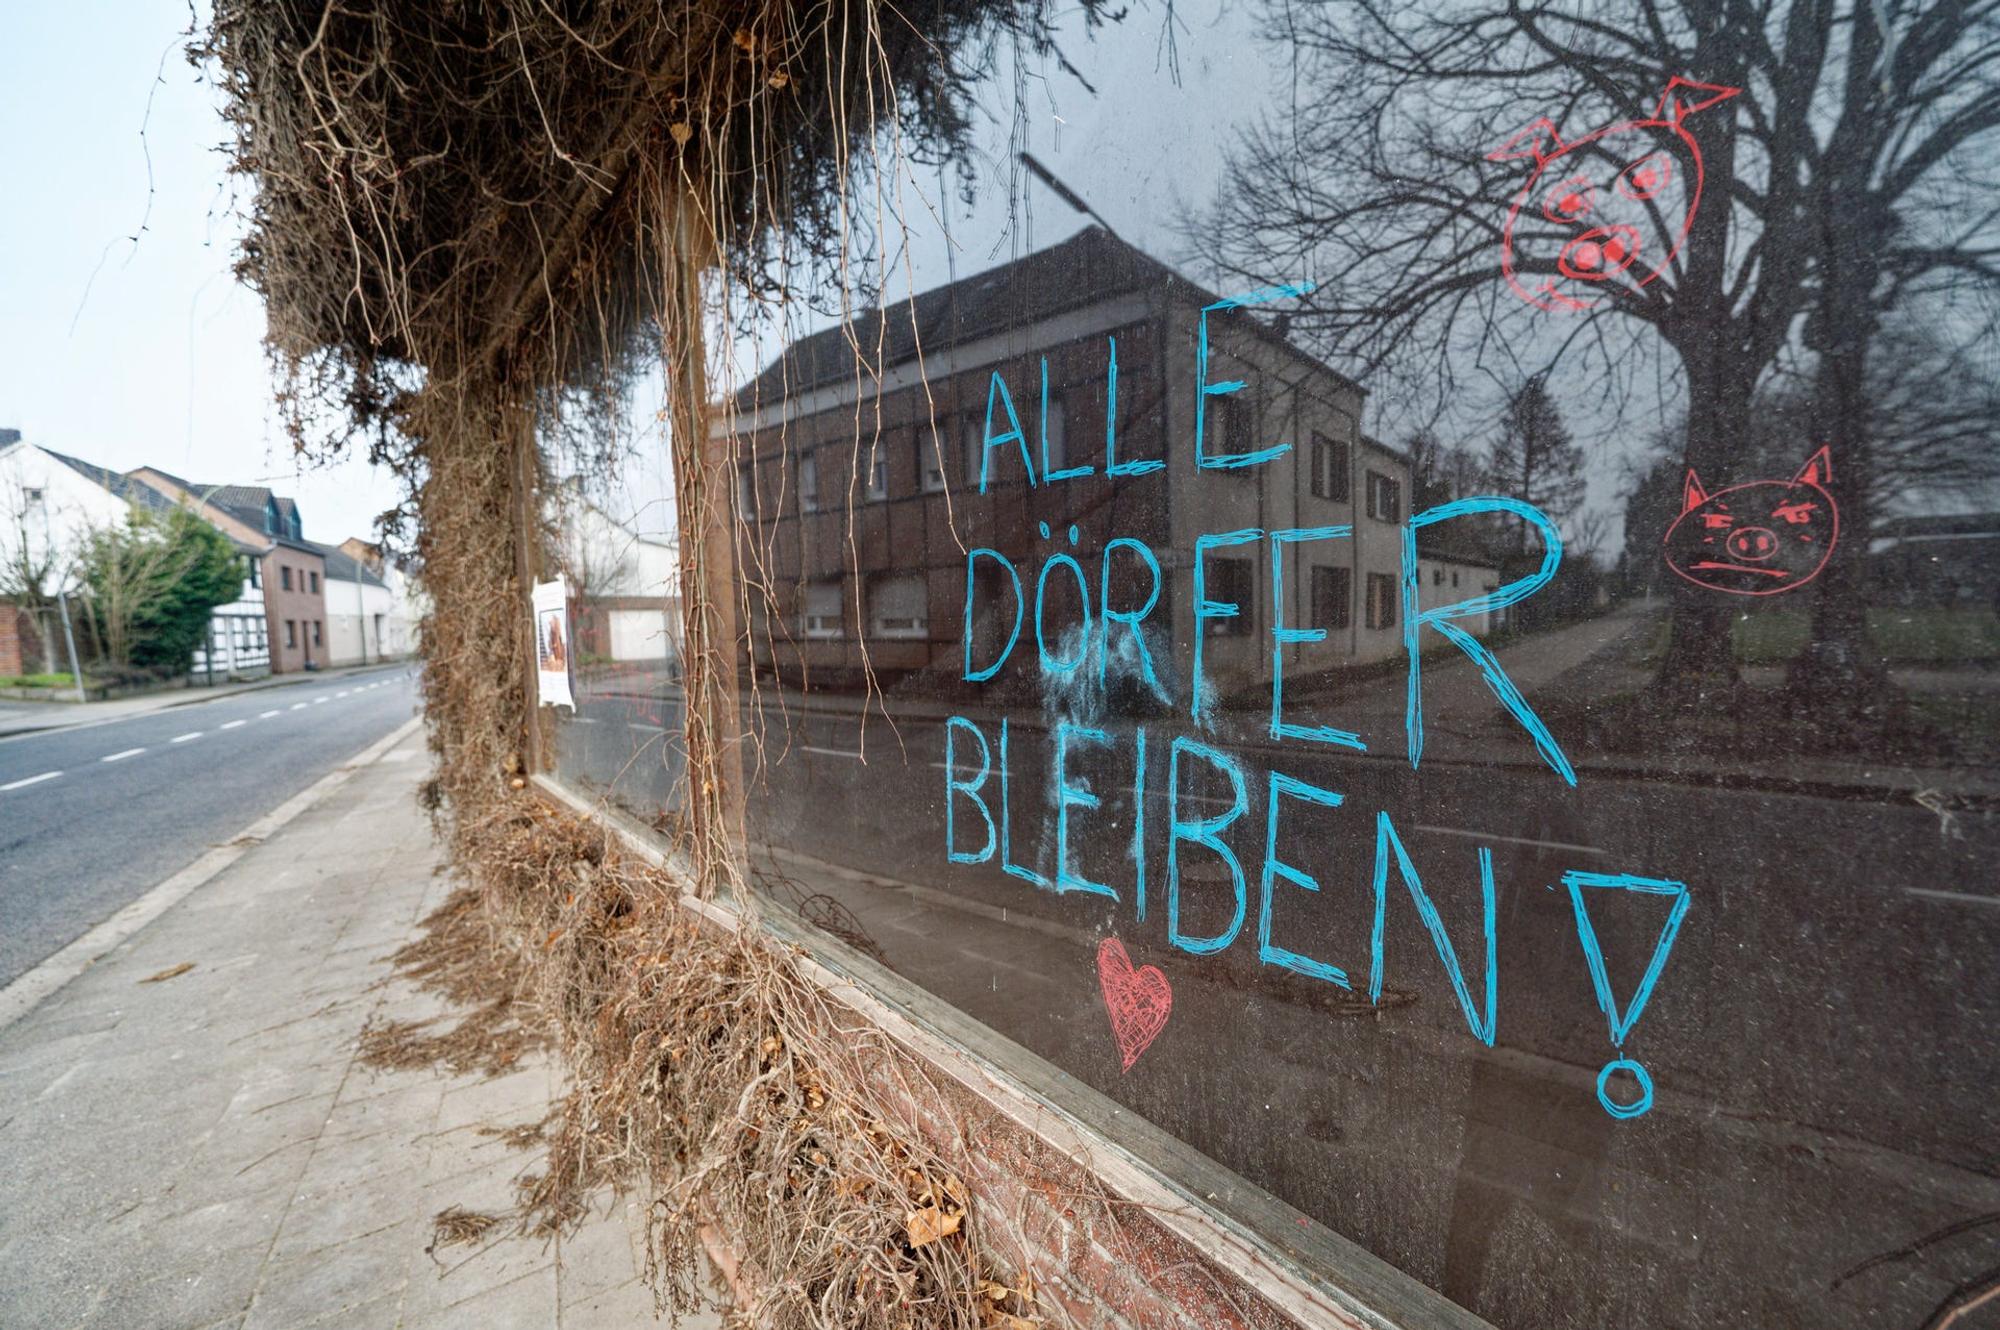 ALLE
DÖRFER
BLEIBEN!